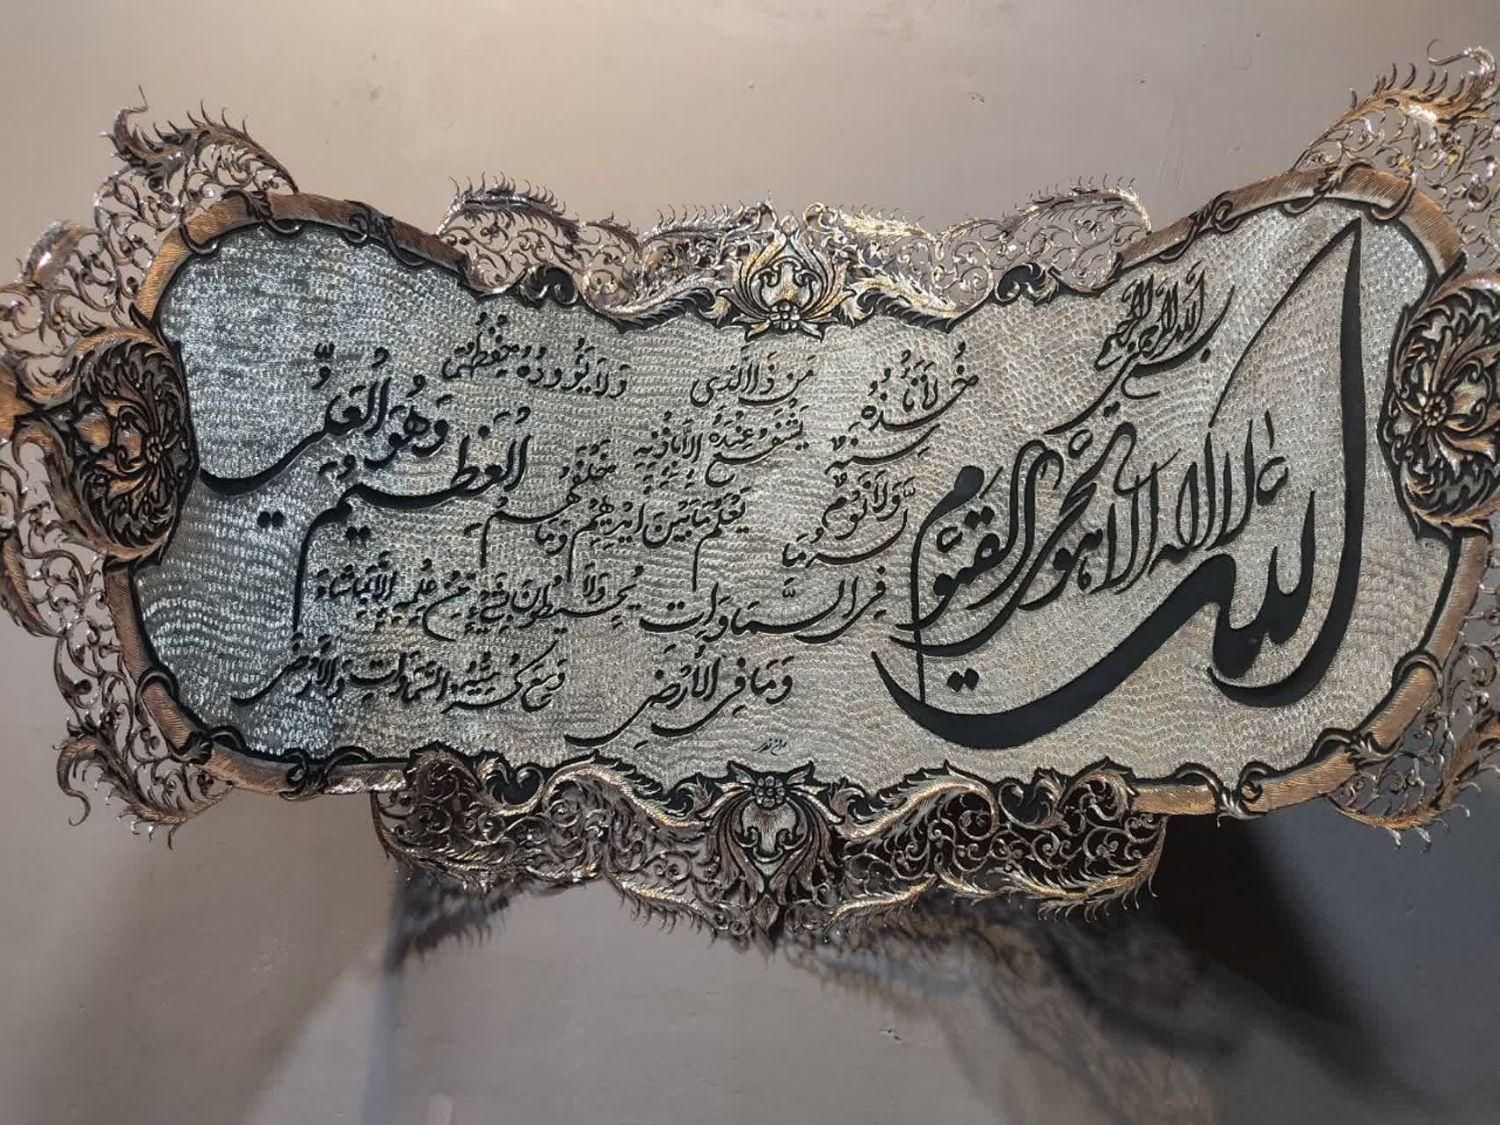 بسم الله الرحمن الرحیم
الله لا اله الا هو الحی القیوم
لا تأخذه
سنة
وَلَا نَوْمٌ
لَّهُ مَا
فِی السَّمَاوَات
وَمَا فِی الْأَرْضِ
مَن ذَا الَّذی
یَشْفَعُ عِندَهُ إِلَّا بِإِذْنِهِ
یَعْلَمُ مَا بَیْنَ أَیْدِیهِمْ وَمَا خَلْفَهُمْ
وَلَا یُحِیطُونَ بِشَیْءٍ مِّنْ عِلْمِهِ إِلَّا بِمَا شَاءَ
وَسِعَ کُرْسِیُّهُ السَّمَاوَاتِ وَالْأَرْضَ
وَلَا یَئُودُهُ حِفْظُهُمَا
وَهُوَ الْعَلِیُّ
الْعَظِیمُ